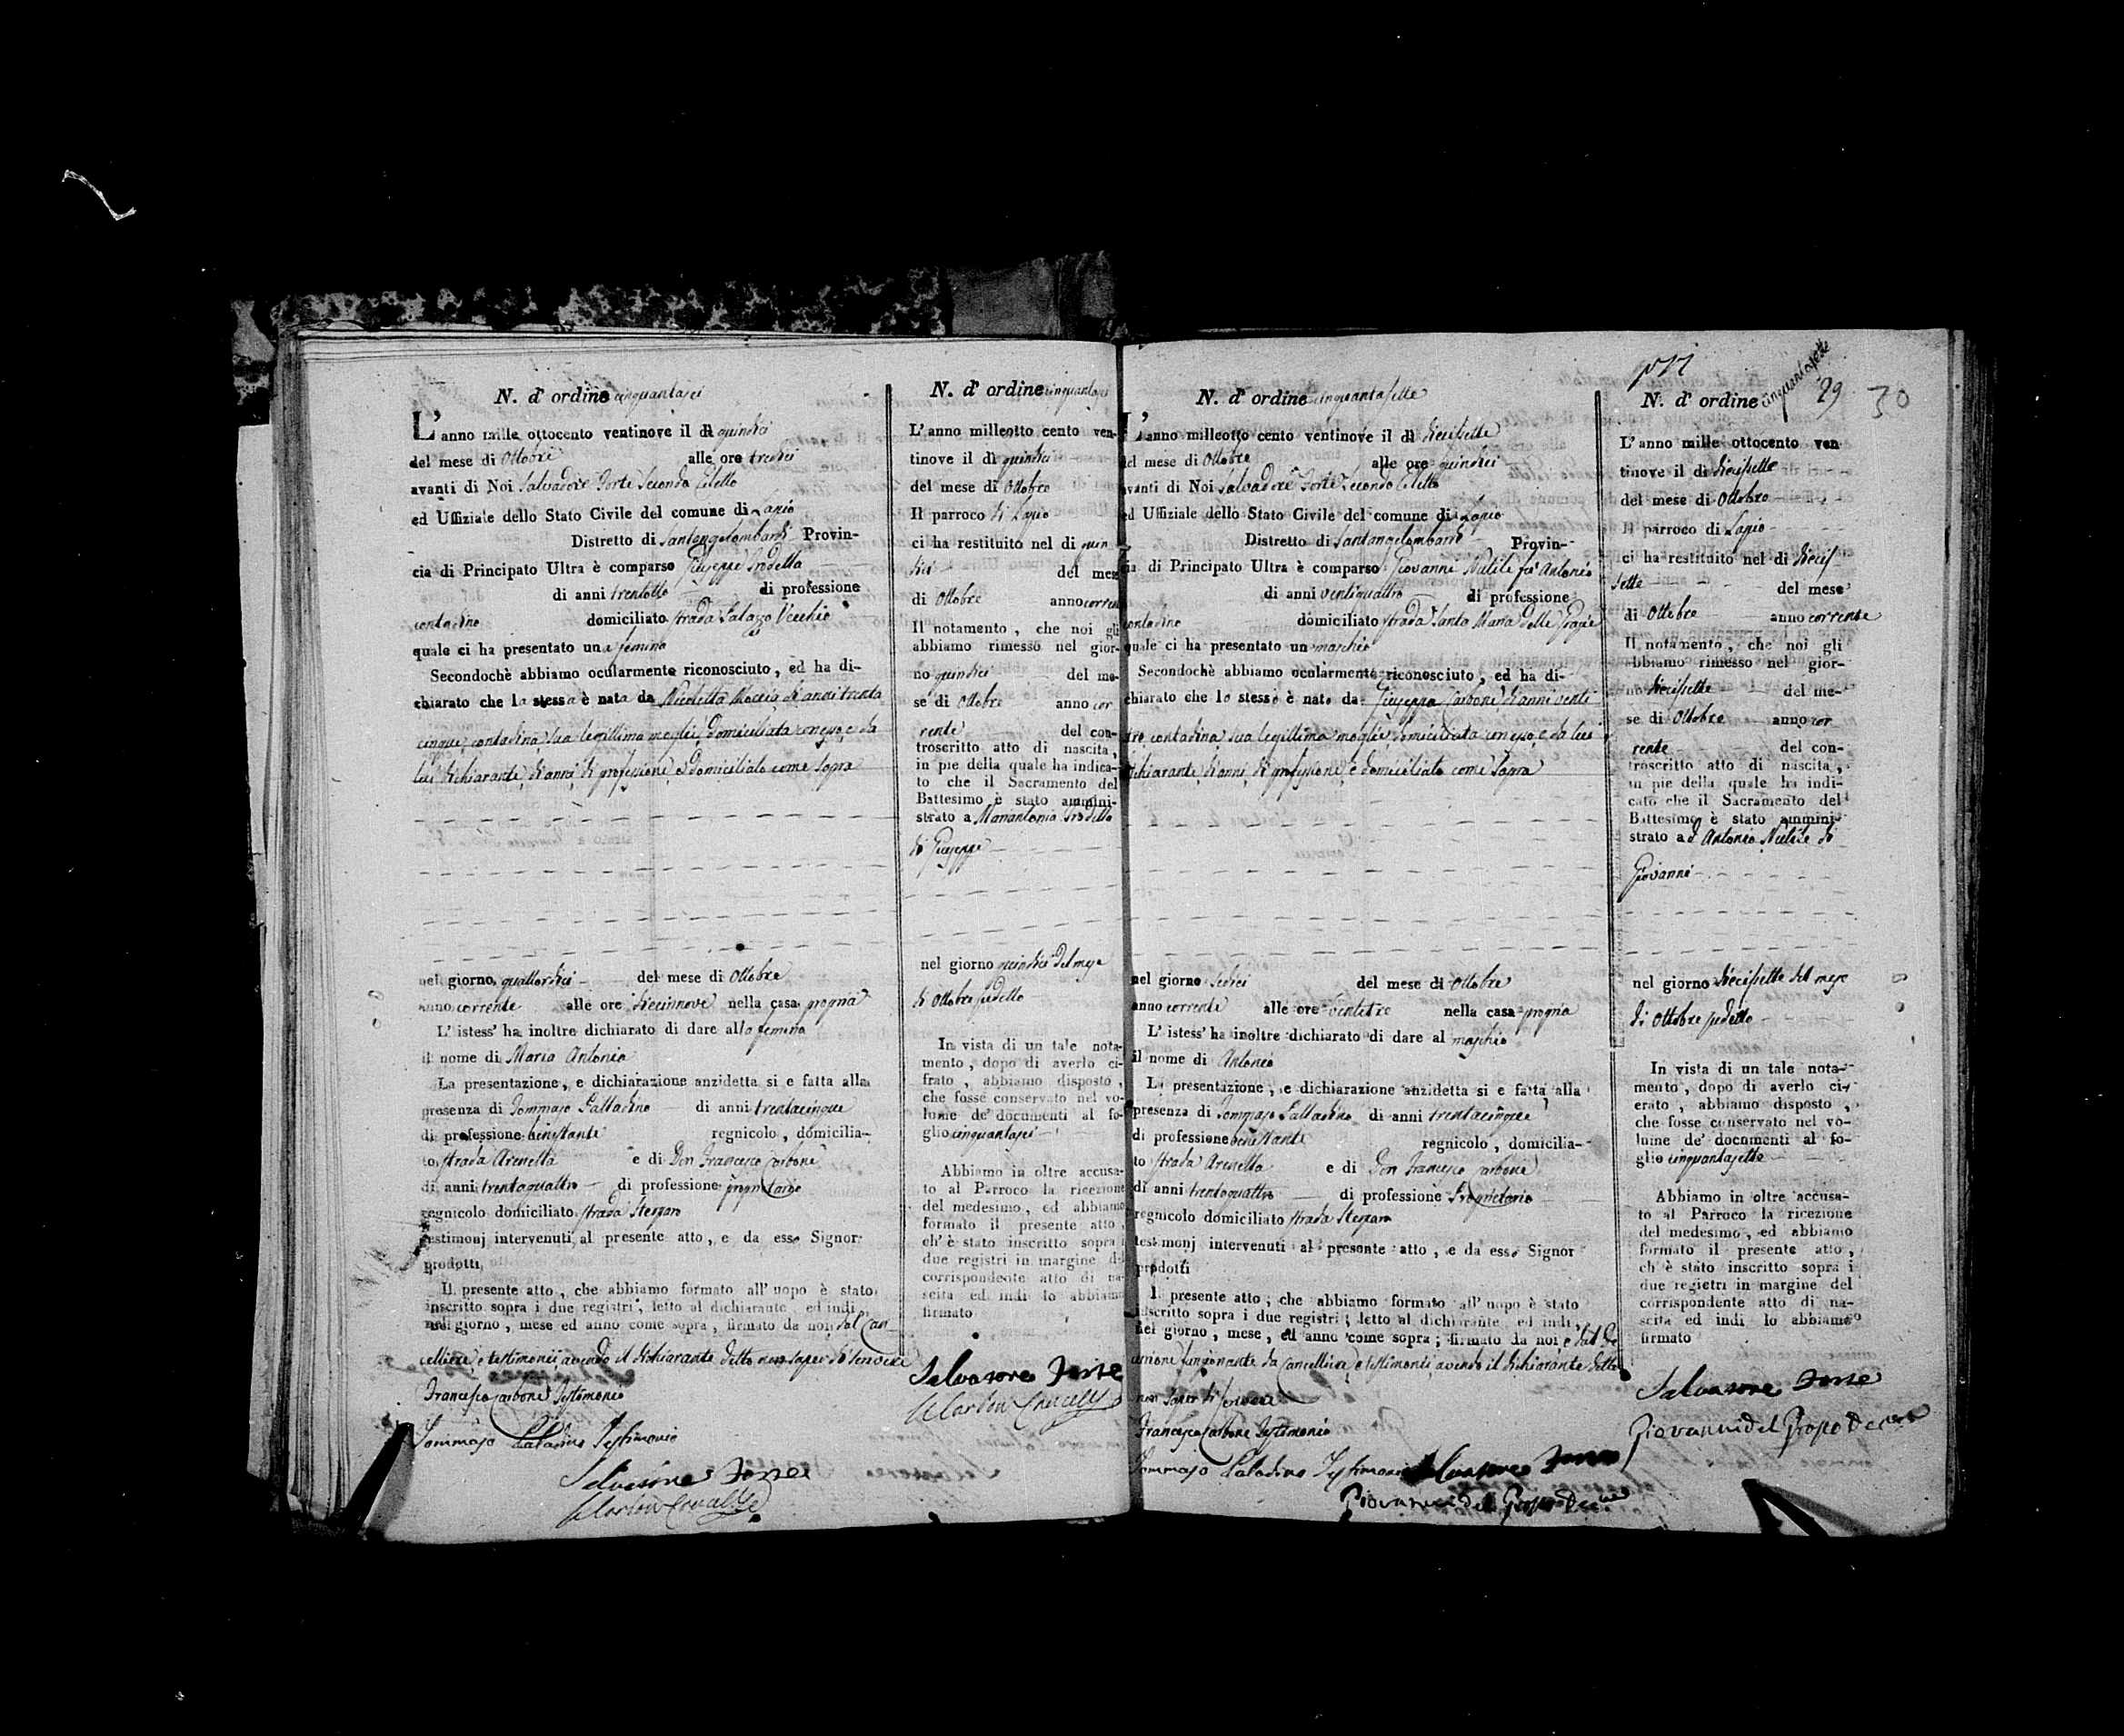 N. d'ordine cinquantasei
L'anno mille ottocento ventinove il dì quindici
del mese di Ottobre alle ore tredici
avanti di Noi Salvadore Forte Secondo Eletto
ed Uffiziale dello Stato Civile del comune di Lapio
Distretto di Santangelombardi Provin-
cia di Principato Ultra è comparso Giuseppe
di anni trentotto di professione
contadino domiciliato strada Palazzo Vecchio
quale ci ha presentato una femina
Secondochè abbiamo ocularmente riconosciuto, ed ha di-
chiarato che la stessa è nata da Nicoletta Moccia di anni trenta
cinque contadina sua legittima moglie domiciliata con esso e da
lui dichiarante di anni di professione e domiciliato come sopra
nel giorno quattordici del mese di Ottobre
anno corrente alle ore diecinnove nella casa propria
L'istess' ha inoltre dichiarato di dare alla femina
il nome di Maria Antonia
La presentazione, e dichiarazione anzidetta si e fatta alla
presenza di Tommaso Palladino di anni trentacinque
di professione benestante regnicolo, domicilia-
to strada Arenella e di Don Francesco Carbone
di anni trentaquattro di professione proprietario
regnicolo domiciliato strada
testimonj intervenuti al presente atto, e da esso Signor
prodotti,
Il presente atto, che abbiamo formato all' uopo è stato
inscritto sopra i due registri, letto al dichiarante ed indi,
nel giorno, mese ed anno come sopra, firmato da noi, dal Can-
celliere e testimonii avendo il dichiarante detto non saper di scrivere
Francesco Carbone Testimonio
Tommaso Paladino Testimonio
Salvadore Forte
N. d'ordine cinquantasei
L'anno milleotto cento ven-
tinove il dì quindici
del mese di Ottobre
Il parroco di Lapio
ci ha restituito nel di quin
dici del mese
di Ottobre anno corrente
Il notamento, che noi gli
abbiamo rimesso nel gior-
no quindici del me-
se di Ottobre anno cor
rente del con-
troscritto atto di nascita,
in pie della quale ha indica-
to che il Sacramento del
Battesimo è stato ammini-
strato a Mariantonia
di Giuseppe
nel giorno quindici del mese
di Ottobre sudetto
In vista di un tale nota-
mento, dopo di averlo ci-
frato, abbiamo disposto,
che fosse conservato nel vo-
lume de' documenti al fo-
glio cinquantasei
Abbiamo in oltre accusa-
to al Parroco la ricezione
del medesimo, ed abbiamo
formato il presente atto,
ch' è stato inscritto sopra i
due registri in margine del
corrispondente atto di na-
scita ed indi lo abbiamo
firmato
Salvadore Forte
N. d'ordine cinquantasette
L'anno milleotto cento ventinove il dì diecisette
del mese di Ottobre alle ore quindici
avanti di Noi Salvadore Forte Secondo Eletto
ed Uffiziale dello Stato Civile del comune di Lapio
Distretto di Santangelombardi Provin-
cia di Principato Ultra è comparso Giovanni fu Antonio
di anni ventiquattro di professione
contadino domiciliato strada Santa Maria delle Grazie
quale ci ha presentato un maschio
Secondochè abbiamo ocularmente riconosciuto, ed ha di-
chiarato che lo stesso è nato da Giuseppa Carbone di anni venti
tre contadina sua legittima moglie domiciliata con esso e da lui
dichiarante di anni di professione e domiciliato come sopra
nel giorno sedici del mese di Ottobre
anno corrente alle ore ventitre nella casa propria
L'istess' ha inoltre dichiarato di dare al maschio
il nome di Antonio
La presentazione, e dichiarazione anzidetta si e fatta alla
presenza di Tommaso Palladino di anni trentacinque
di professione benestante regnicolo, domicilia-
to strada Arenella e di Don Francesco Carbone
di anni trentaquattro di professione Proprietario
regnicolo domiciliato strada
testimonj intervenuti al presente atto, e da esso Signor
prodotti
Il presente atto, che abbiamo formato all' uopo è stato
inscritto sopra i due registri, letto al dichiarante ed indi,
nel giorno, mese, ed anno come sopra, firmato da noi e dal De
curione funzionante da Cancelliere e testimonii avendo il dichiarante detto
non saper di scrivere
Francesco Carbone Testimonio
Tommaso Paladino Testimonio Salvadore Forte
Giovanni del Grosso
29 30
N. d'ordine cinquantasette
L'anno mille ottocento ven
tinove il di diecisette
del mese di Ottobre
Il parroco di Lapio
ci ha restituito nel di diecis
sette del mese
di Ottobre anno corrente
Il notamento, che noi gli
abbiamo rimesso nel gior-
no diecisette del me-
se di Ottobre anno cor
rente del con-
troscritto atto di nascita,
in pie della quale ha indi-
cato che il Sacramento del
Battesimo è stato ammini-
strato ad Antonio di
Giovanni
nel giorno diecisette del mese
di Ottobre sudetto
In vista di un tale nota-
mento, dopo di averlo ci-
erato, abbiamo disposto,
che fosse conservato nel vo-
lume de' documenti al fo-
glio cinquantasette
Abbiamo in oltre accusa-
to al Parroco la ricezione
del medesimo, ed abbiamo
formato il presente atto,
ch è stato inscritto sopra i
due registri in margine del
corrispondente atto di na-
scita ed indi lo abbiamo
firmato
Salvadore Forte
Giovanni del Grosso